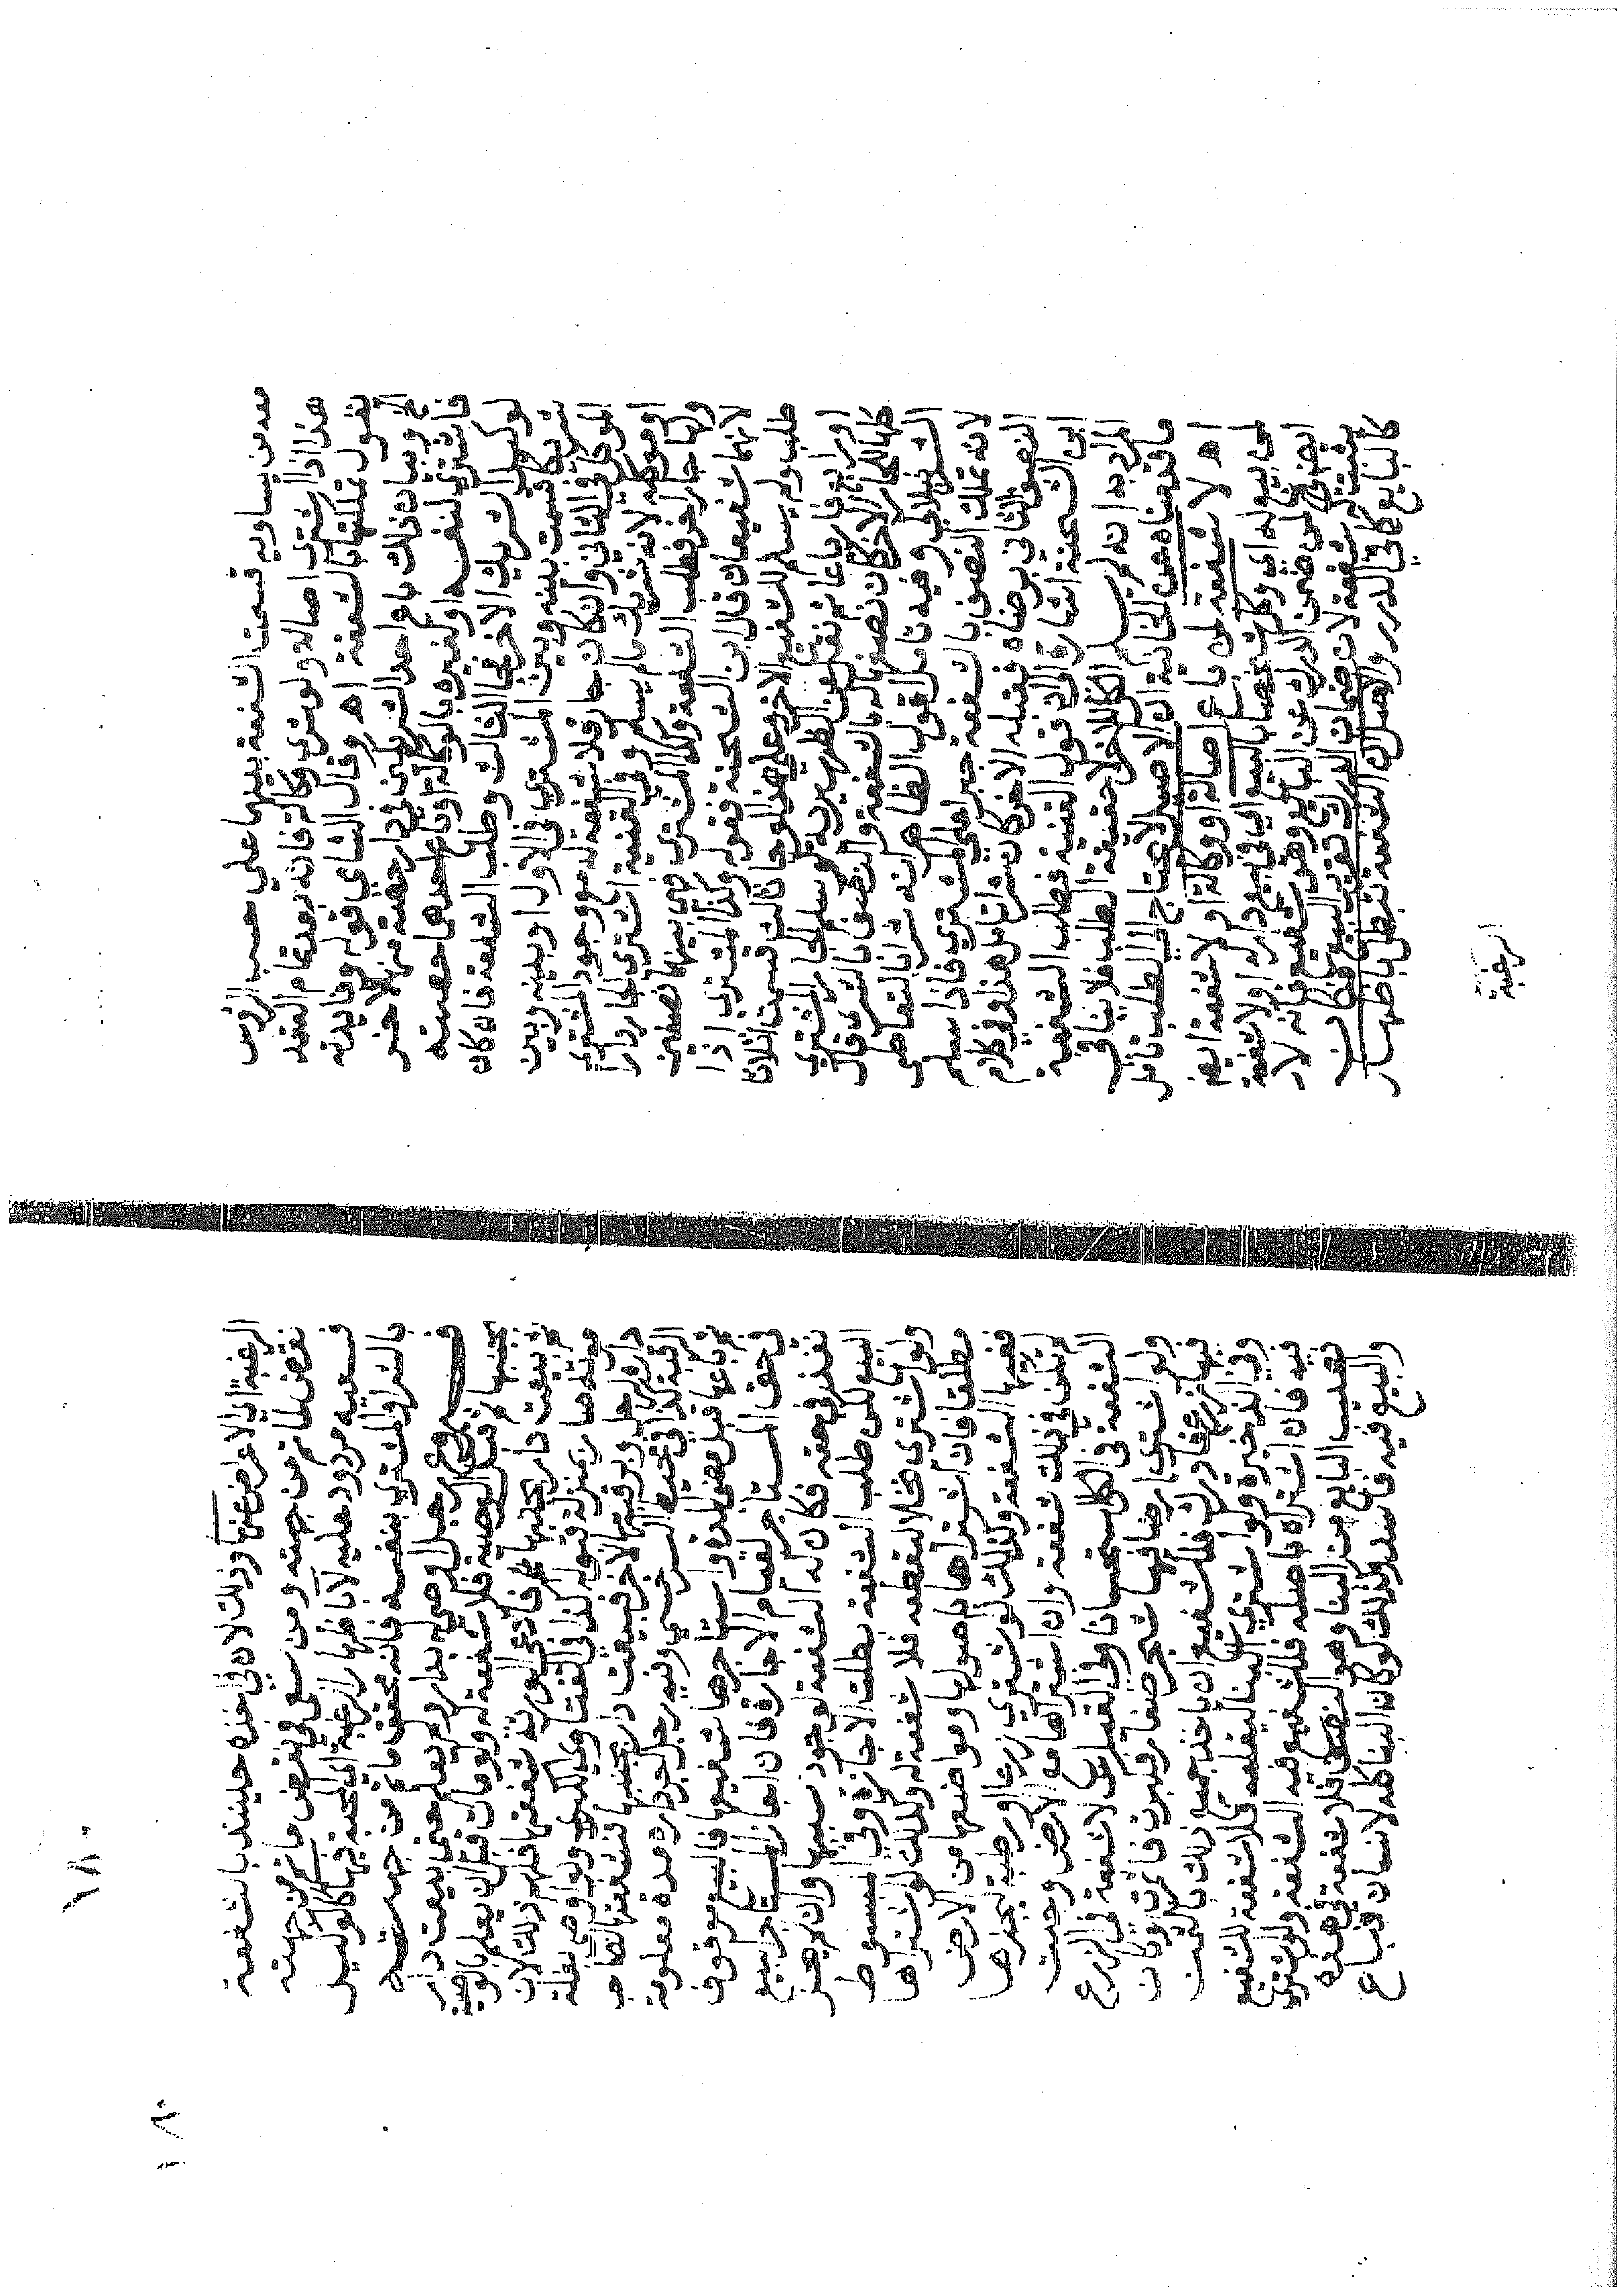 معه من يساويه قسمت الشفعة بينهما علي حسب الرؤس
هذا اذا اشتري اصالة ولو شري وكالة فانه بعد تمام العقد
يقول تملكتها بالشفعة اه وقال الشامي قوله وفايدته
الخ وبيان ذلك باع احد الشريكين في دار حصته منها لاخر
فاشتري لنفسه او لغيره بالوكالة او باع احدهما حصته
لوكيل الشريك الاخر فجا الثالث وطلب الشفعة فان كان
شريكا قسمت بينه وبين المشتري في الاول او بينه وبين
الموكل في الثاني وان كان جار فلا شفعة له مع وجود المشتري
او موكله لانه شريك ما لم يسلم وفي القنية اشتري الجار دارا
ولها جار اخر فطلب الشفعة وكذا المشتري فهي بينهما نصفين
لانهما شفيعان قال ابن الشحنة فقوله وكذا المشتري اذا
طلب ولم يسلم للشفيع الاخر وعلي هذا لو جا ثالث قسمت اثلاثا
او رابع فارباعا ثم نقل عن الظهيرية لو سلم الجار المشتري
كلها للجار الاخر كان نصفها له بالشفعة والنصف بالشري قال
الشرنبلالي وفيه تامل اقول الظاهر انه شرا بالتعاطي
لانه تملك النصف بالشفعة جبرا علي المشتري فاذا سلم
النصف الثاني برضاه وقبله الاخر كان شرا تامل هذا وفي كلام
ابن الشحنة اشارة الي ان قول القنية فطلب الشفعة
المراد به انه لم يسلم الكل للاخر لا حقيقة الطلب فلا ينافي
ما قدمناه عن الخانية ان الاصيل لا يحتاج الي الطلب تامل
اه لا شفعة لمن باع اصالة او وكالة او لا شفعة ايض
لمن بيع له اي وكل شخصا بالبيع اي في بيع داره او لا شفعة
ايض لمن ضمن الدرك عن البائع وهو شفيع فانه لا
يثبت له شفعة لان ضمان الدرك تقرير البيع فكان
كالبايع كما في الدرر والاصل ان الشفعة تبطل باظهار
الرغبة
الرغبة الي الاعراض عنها وذلك لان في اخذه حينئذ بالشفعة
نقض لما تم من جهته ومن سعي في نقض ما تم من جهته
فسعيه مردود عليه لا باظهار الرغبة اي المحبة فيها كالوكيل
بالشرا والمشتري بنفسه فانه تحقق ما تم من جهته
فروع رجل اوصي له بدار ولم يعلم حتي بيعت دار
بجنبها ثم قبل الوصية فلا شفعة له ولو مات قبل ان يعلم بالوصية
ثم بيعت دار بجنبها فادعي الورثة شفعتها فلهم ذلك لان
موته صار بمنزلة قبوله كذا في الفتاوي الكبري ولو اوصي بغلة
داره لرجل وبرقبتها لاخر فبيعت دار بجنبها فشفعتها لصاحب
الرقبة كذا في محيط السرخسي وفيه رجل اجر داره مدة معلومة
ثم باعها قبل مضي المدة والمستاجر شفيعها فالبيع موقوف
في حق المستاجر لقيام الاجارة فان اجاز المستاجر البيع
نفذ في حقه فكان له الشفعة لوجود سببها وان لم يجز
البيع لكن طلب الشفعة بطلت الاجازة وفي المبسوط
ولو اشتري نخلا لقطعه فلا شفعة له وكذلك لو اشتراها
مطلقا فان اشتراها باصولها ومواضعها من الارض
ففيها الشفعة وكذلك لو اشتري زرعا او رطبة ليجزها
لم يكن في ذلك شفعة وان اشتراها مع الارض وجبت
الشفعة في الكل استحسانا وفي القياس لا شفعة في الزرع
ولو اشتري ارضا فيها شجر صغار فكبرت فاثمرت او كان
فيها زرع فادرك فللشفيع ان ياخذ جميع ذلك بالثمن
وفي الذخيرة ولو اشتري البنا ليقلعه فلا شفعة للشفيع
فيه فان اشتراه باصله فللشفيع فيه الشفعة ولو اشتري
نصيب البايع من البنا وهو النصف فلا شفعة في هذا
والبيع فيه فاسد وكذلك لو كان البنا كله لانسان فباع
١٨٠